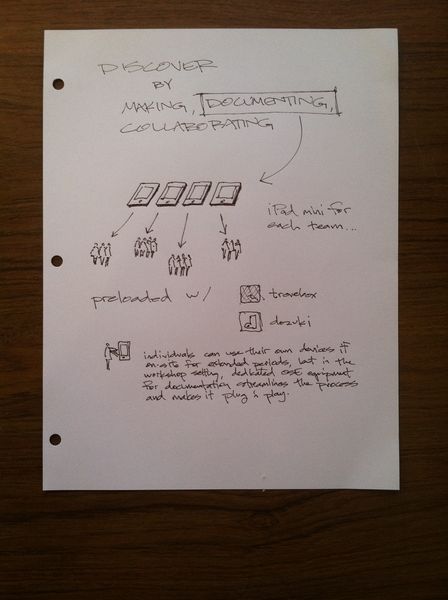 DISCOVER
BY
MAKING, DOCUMENTING,
COLLABORATING
iPad mini for
each team...
preloaded w/
trovebox
dozuki
individuals can use their own devices if
on-site for extended periods, but in the
workshop setting, dedicated OSE equipment
for documentation streamlines the process
and makes it plug n play.